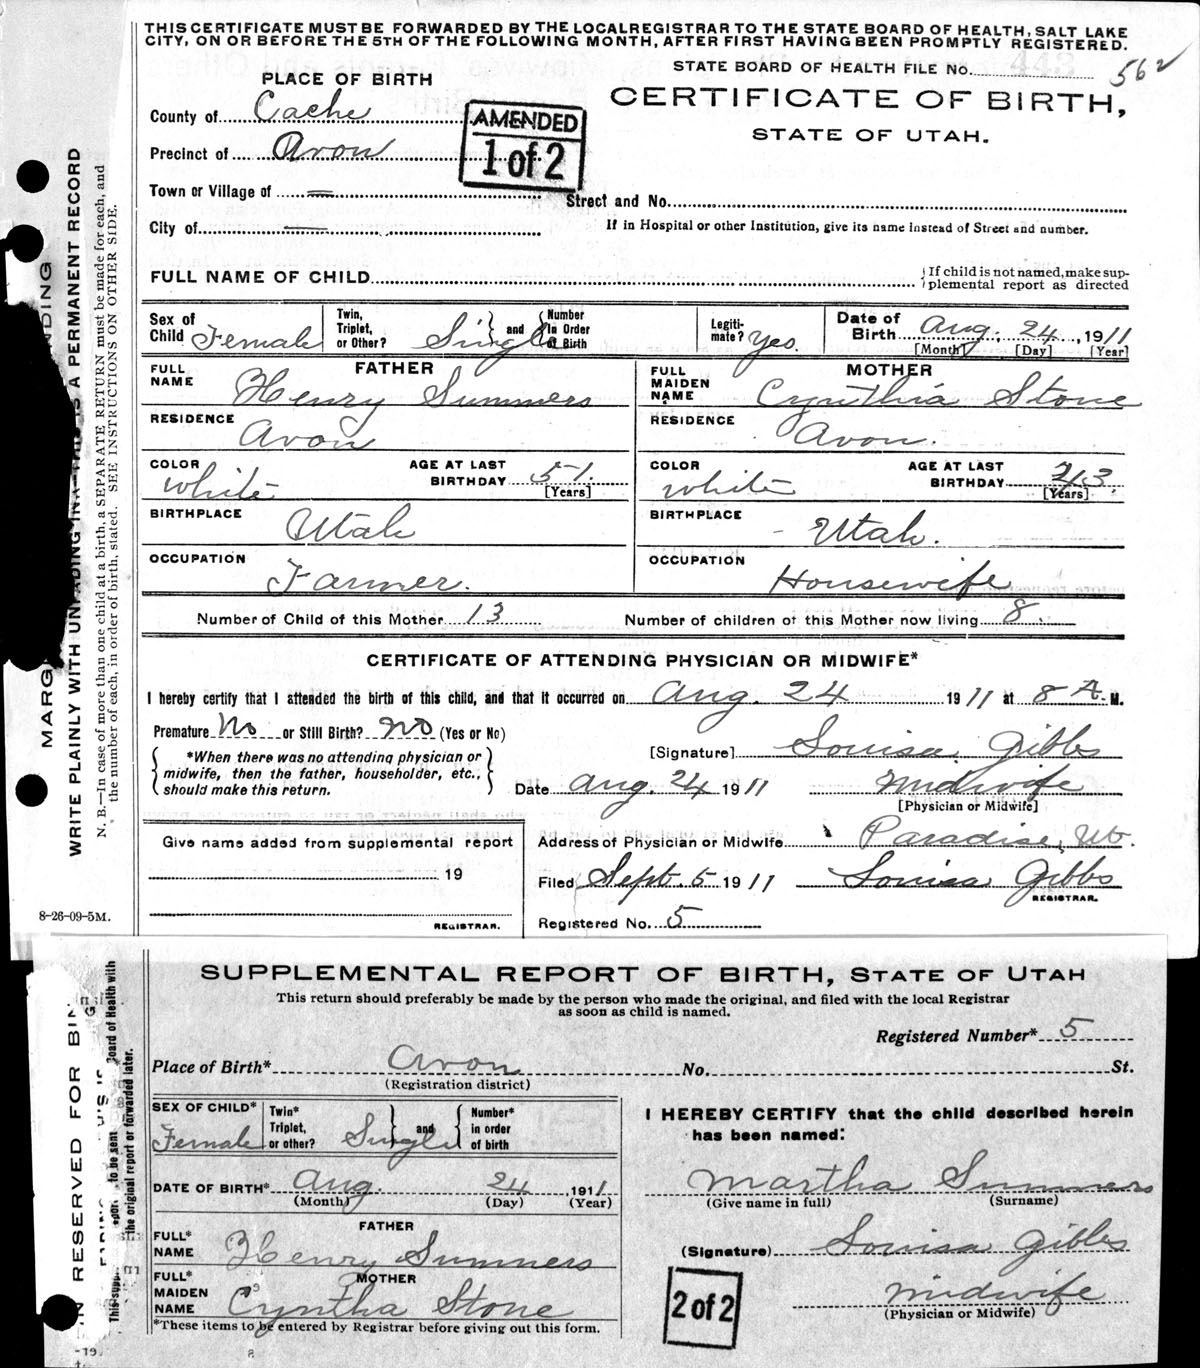 THIS CERTIFICATE MUST BE FORWARDED BY THE LOCAL REGISTRAR TO THE STATE BOARD OF HEALTH, SALT LAKE
CITY, ON OR BEFORE THE 5TH OF THE FOLLOWING MONTH, AFTER FIRST HAVING BEEN PROMPTLY REGISTERED.
STATE BOARD OF HEALTH FILE No. 562
PLACE OF BIRTH
CERTIFICATE OF BIRTH,
STATE OF UTAH.
County of Cache
AMENDED
1 of 2
Precinct of Avon
Town or Village of —
Street and No.
City of —
If in Hospital or other Institution, give its name instead of Street and number.
FULL NAME OF CHILD
If child is not named, make sup-
plemental report as directed
Sex of Child Female
Twin, Triplet, or Other? Single and Number In Order of Birth
Legiti-mate? Yes.
Date of Birth Aug. 24, 1911
[Month] [Day] [Year]
FATHER
FULL NAME Henry Summers
MOTHER
FULL MAIDEN NAME Cynthia Stone
RESIDENCE Avon
RESIDENCE Avon.
COLOR White AGE AT LAST BIRTHDAY 51 [Years]
COLOR White AGE AT LAST BIRTHDAY 43 [Years]
BIRTHPLACE Utah
BIRTHPLACE Utah.
OCCUPATION Farmer.
OCCUPATION Housewife
Number of Child of this Mother 13 Number of children of this Mother now living 8
CERTIFICATE OF ATTENDING PHYSICIAN OR MIDWIFE*
I hereby certify that I attended the birth of this child, and that it occurred on Aug. 24 1911 at 8 A. M.
Premature No or Still Birth? No (Yes or No)
*When there was no attending physician or
midwife, then the father, householder, etc.,
should make this return.
[Signature] Louisa Gibbs
Date Aug. 24 1911 Midwife
[Physician or Midwife]
Give name added from supplemental report
19
REGISTRAR.
Address of Physician or Midwife Paradise, Ut.
Filed Sept. 5 1911 Louisa Gibbs
REGISTRAR.
Registered No. 5
8-26-09-5M.
WRITE PLAINLY WITH UNFADING INK—THIS IS A PERMANENT RECORD
N. B.—In case of more than one child at a birth, a SEPARATE RETURN must be made for each, and
the number of each, in order of birth, stated. SEE INSTRUCTIONS ON OTHER SIDE.
SUPPLEMENTAL REPORT OF BIRTH, STATE OF UTAH
This return should preferably be made by the person who made the original, and filed with the local Registrar
as soon as child is named.
Registered Number* 5
Place of Birth* Avon No. St.
(Registration district)
SEX OF CHILD* Female
Twin* Triplet, or other? Single and Number* in order of birth
I HEREBY CERTIFY that the child described herein
has been named:
DATE OF BIRTH* Aug. 24 1911
(Month) (Day) (Year)
Martha Summers
(Give name in full) (Surname)
FATHER
FULL* NAME Henry Summers
(Signature) Louisa Gibbs
MOTHER
FULL* MAIDEN NAME Cyntha Stone
2 of 2
Midwife
(Physician or Midwife)
*These items to be entered by Registrar before giving out this form.
IN RESERVED FOR BIN
Board of Health with
the original report or forwarded later.